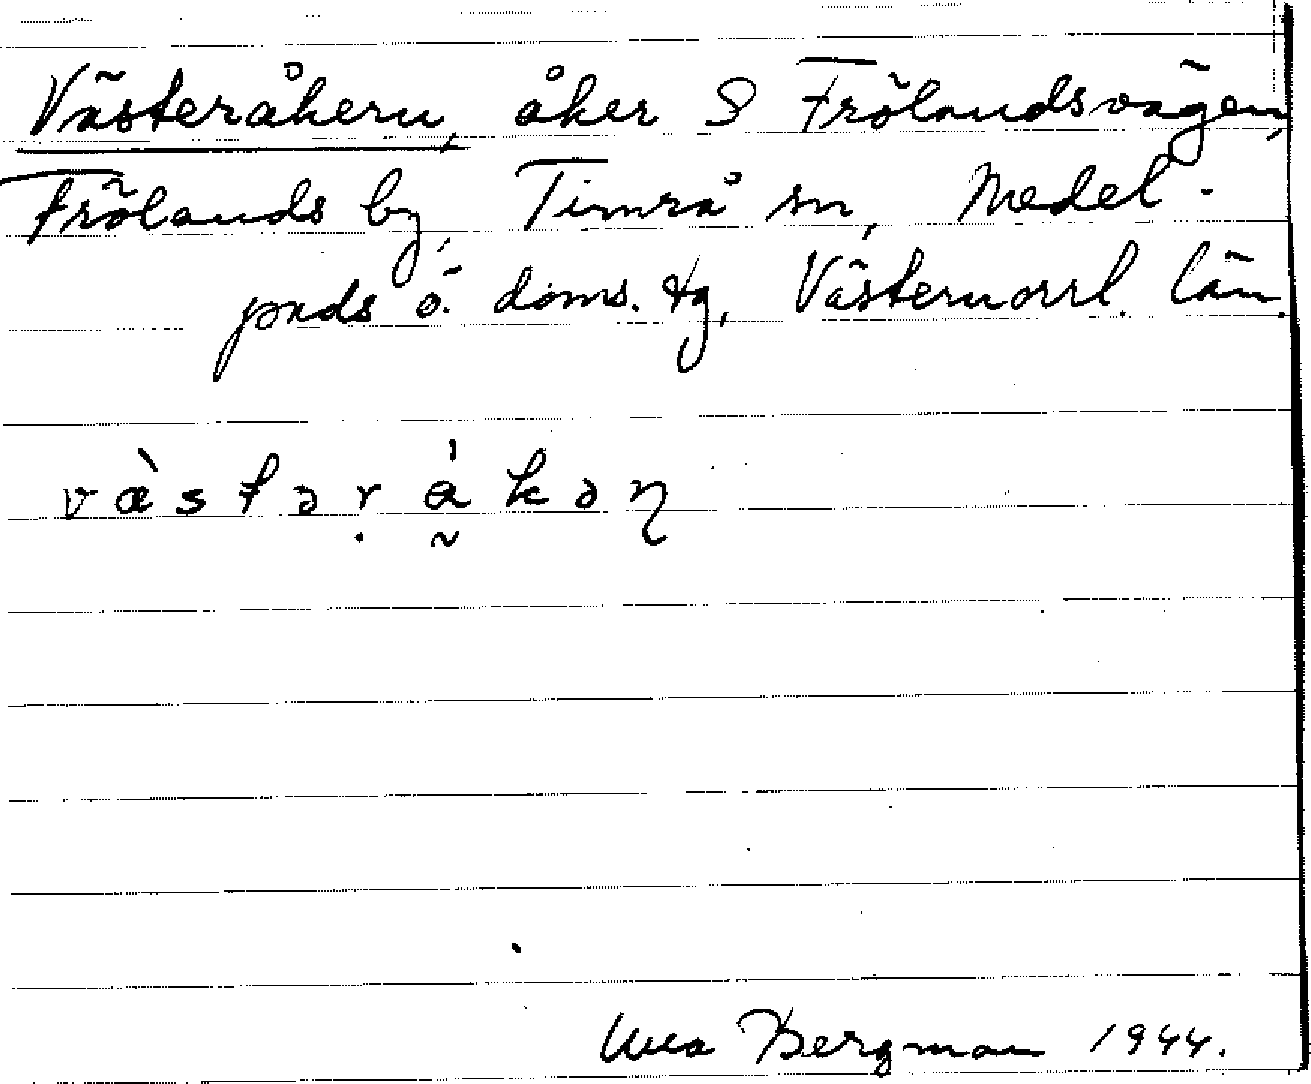 Västeråkern, åker S Frölandsvägen,
Frölands by, Timrå sn, Medel-
pads ö. doms. tg, Västernorrl. län.
vàstərákən
Bergman 1944.